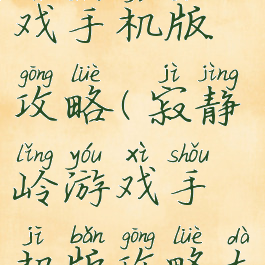 戏手机版
gōng lüè jì jìng
攻略(寂静
lǐng yóu xì shǒu
岭游戏手
jī bǎn gōng lüè dà
机版攻略大